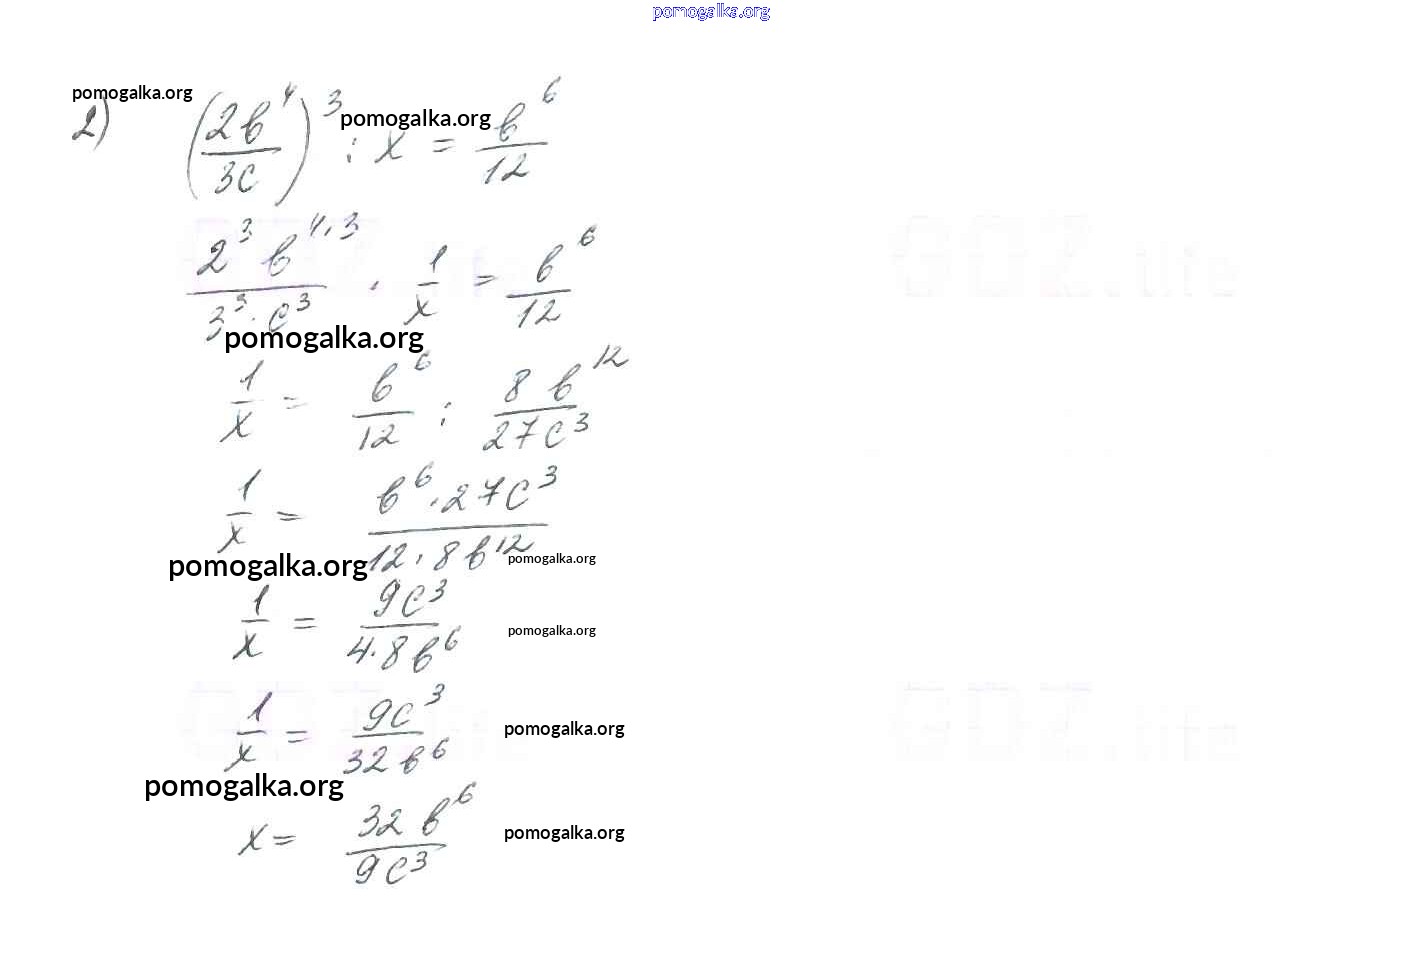 pomogalka.org
pomogalka.org
2) (2b⁴/3c)³ : x = b⁶/12
pomogalka.org
2³ b⁴·³/3³·c³ · 1/x = b⁶/12
pomogalka.org
1/x = b⁶/12 : 8 b¹²/27c³
1/x = b⁶·27c³/12·8b¹²
pomogalka.org pomogalka.org
1/x = 9c³/4·8b⁶ pomogalka.org
1/x = 9c³/32b⁶ pomogalka.org
pomogalka.org
x = 32 b⁶/9c³ pomogalka.org
GDZ.life
GDZ.life
GDZ.life
GDZ.life